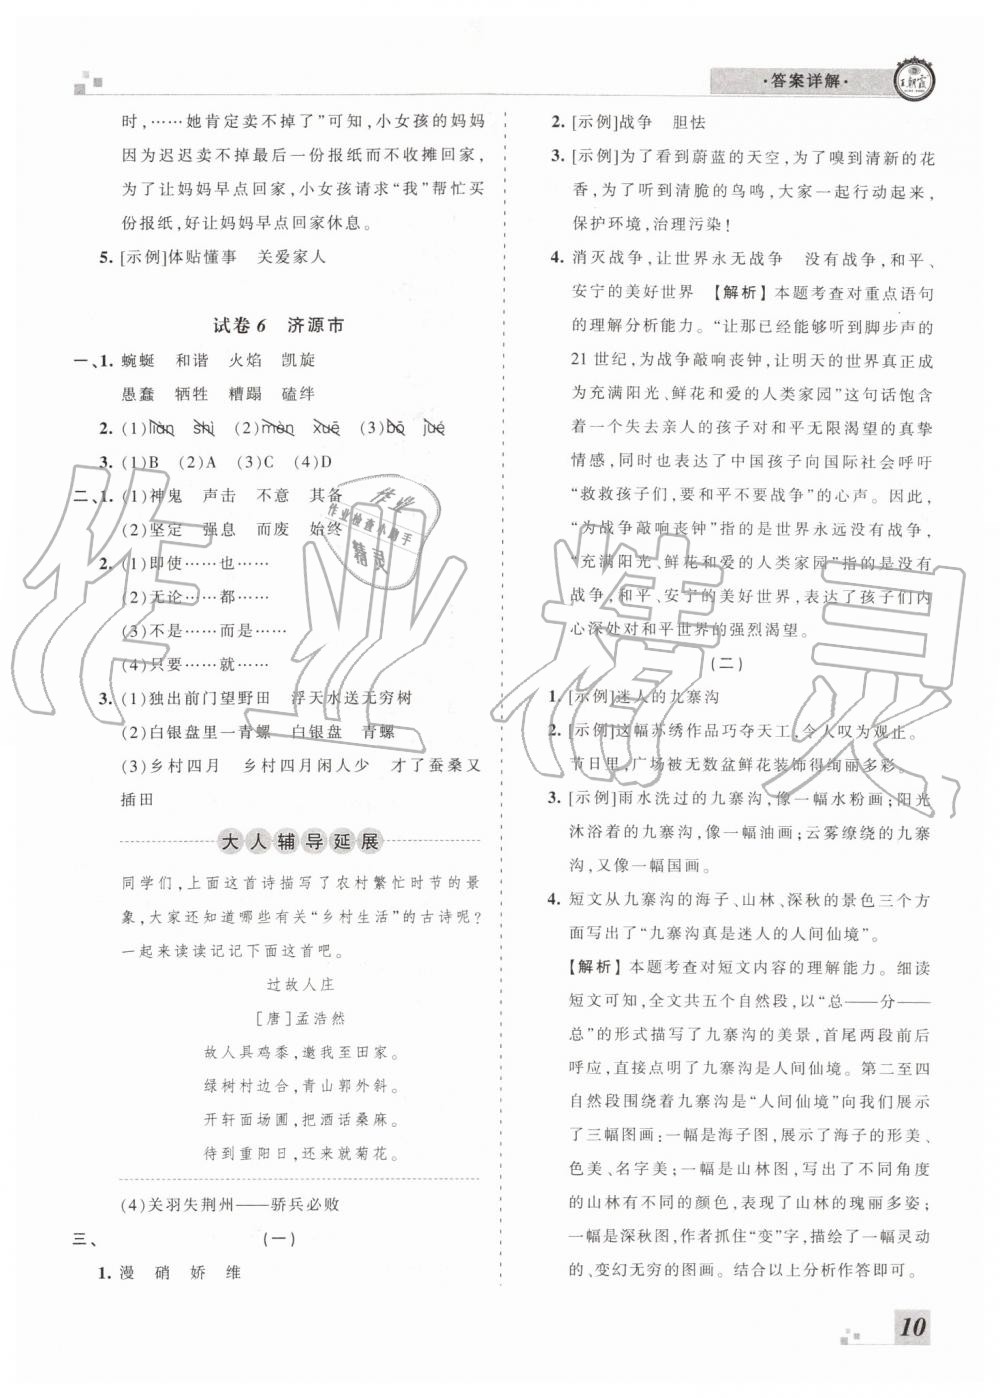 ·答案详解·
王朝霞
时，……她肯定卖不掉了”可知，小女孩的妈妈
因为迟迟卖不掉最后一份报纸而不收摊回家，
为了让妈妈早点回家，小女孩请求“我”帮忙买
份报纸，好让妈妈早点回家休息。
5. [示例]体贴懂事　关爱家人
试卷 6　济源市
一、1. 蜿蜒　和谐　火焰　凯旋
愚蠢　牺牲　糟蹋　磕绊
2. (1)liàn　shì　(2)mèn　xuē　(3)bō　jué
3. (1)B　(2)A　(3)C　(4)D
二、1. (1)神鬼　声击　不意　其备
(2)坚定　强息　而废　始终
2. (1)即使……也……
(2)无论……都……
(3)不是……而是……
(4)只要……就……
3. (1)独出前门望野田　浮天水送无穷树
(2)白银盘里一青螺　白银盘　青螺
(3)乡村四月　乡村四月闲人少　才了蚕桑又
插田
大人辅导延展
同学们，上面这首诗描写了农村繁忙时节的景
象，大家还知道哪些有关“乡村生活”的古诗呢？
一起来读读记记下面这首吧。
过故人庄
[唐]孟浩然
故人具鸡黍，邀我至田家。
绿树村边合，青山郭外斜。
开轩面场圃，把酒话桑麻。
待到重阳日，还来就菊花。
(4)关羽失荆州——骄兵必败
三、　(一)
1. 漫　硝　娇　维
2. [示例]战争　胆怯
3. [示例]为了看到蔚蓝的天空，为了嗅到清新的花
香，为了听到清脆的鸟鸣，大家一起行动起来，
保护环境，治理污染！
4. 消灭战争，让世界永无战争　没有战争，和平、
安宁的美好世界　【解析】本题考查对重点语句
的理解分析能力。“让那已经能够听到脚步声的
21 世纪，为战争敲响丧钟，让明天的世界真正成
为充满阳光、鲜花和爱的人类家园”这句话饱含
着一个失去亲人的孩子对和平无限渴望的真挚
情感，同时也表达了中国孩子向国际社会呼吁
“救救孩子们，要和平不要战争”的心声。因此，
“为战争敲响丧钟”指的是世界永远没有战争，
“充满阳光、鲜花和爱的人类家园”指的是没有
战争，和平、安宁的美好世界，表达了孩子们内
心深处对和平世界的强烈渴望。
(二)
1. [示例]迷人的九寨沟
2. [示例]这幅苏绣作品巧夺天工，令人叹为观止。
节日里，广场被无数盆鲜花装饰得绚丽多彩。
3. [示例]雨水洗过的九寨沟，像一幅水粉画；阳光
沐浴着的九寨沟，像一幅油画；云雾缭绕的九寨
沟，又像一幅国画。
4. 短文从九寨沟的海子、山林、深秋的景色三个方
面写出了“九寨沟真是迷人的人间仙境”。
【解析】本题考查对短文内容的理解能力。细读
短文可知，全文共五个自然段，以“总——分——
总”的形式描写了九寨沟的美景，首尾两段前后
呼应，直接点明了九寨沟是人间仙境。第二至四
自然段围绕着九寨沟是“人间仙境”向我们展示
了三幅图画：一幅是海子图，展示了海子的形美、
色美、名字美；一幅是山林图，写出了不同角度
的山林有不同的颜色，表现了山林的瑰丽多姿；
一幅是深秋图，作者抓住“变”字，描绘了一幅灵动
的、变幻无穷的图画。结合以上分析作答即可。
作业
作业检查小帮手
精灵
作业精灵
10